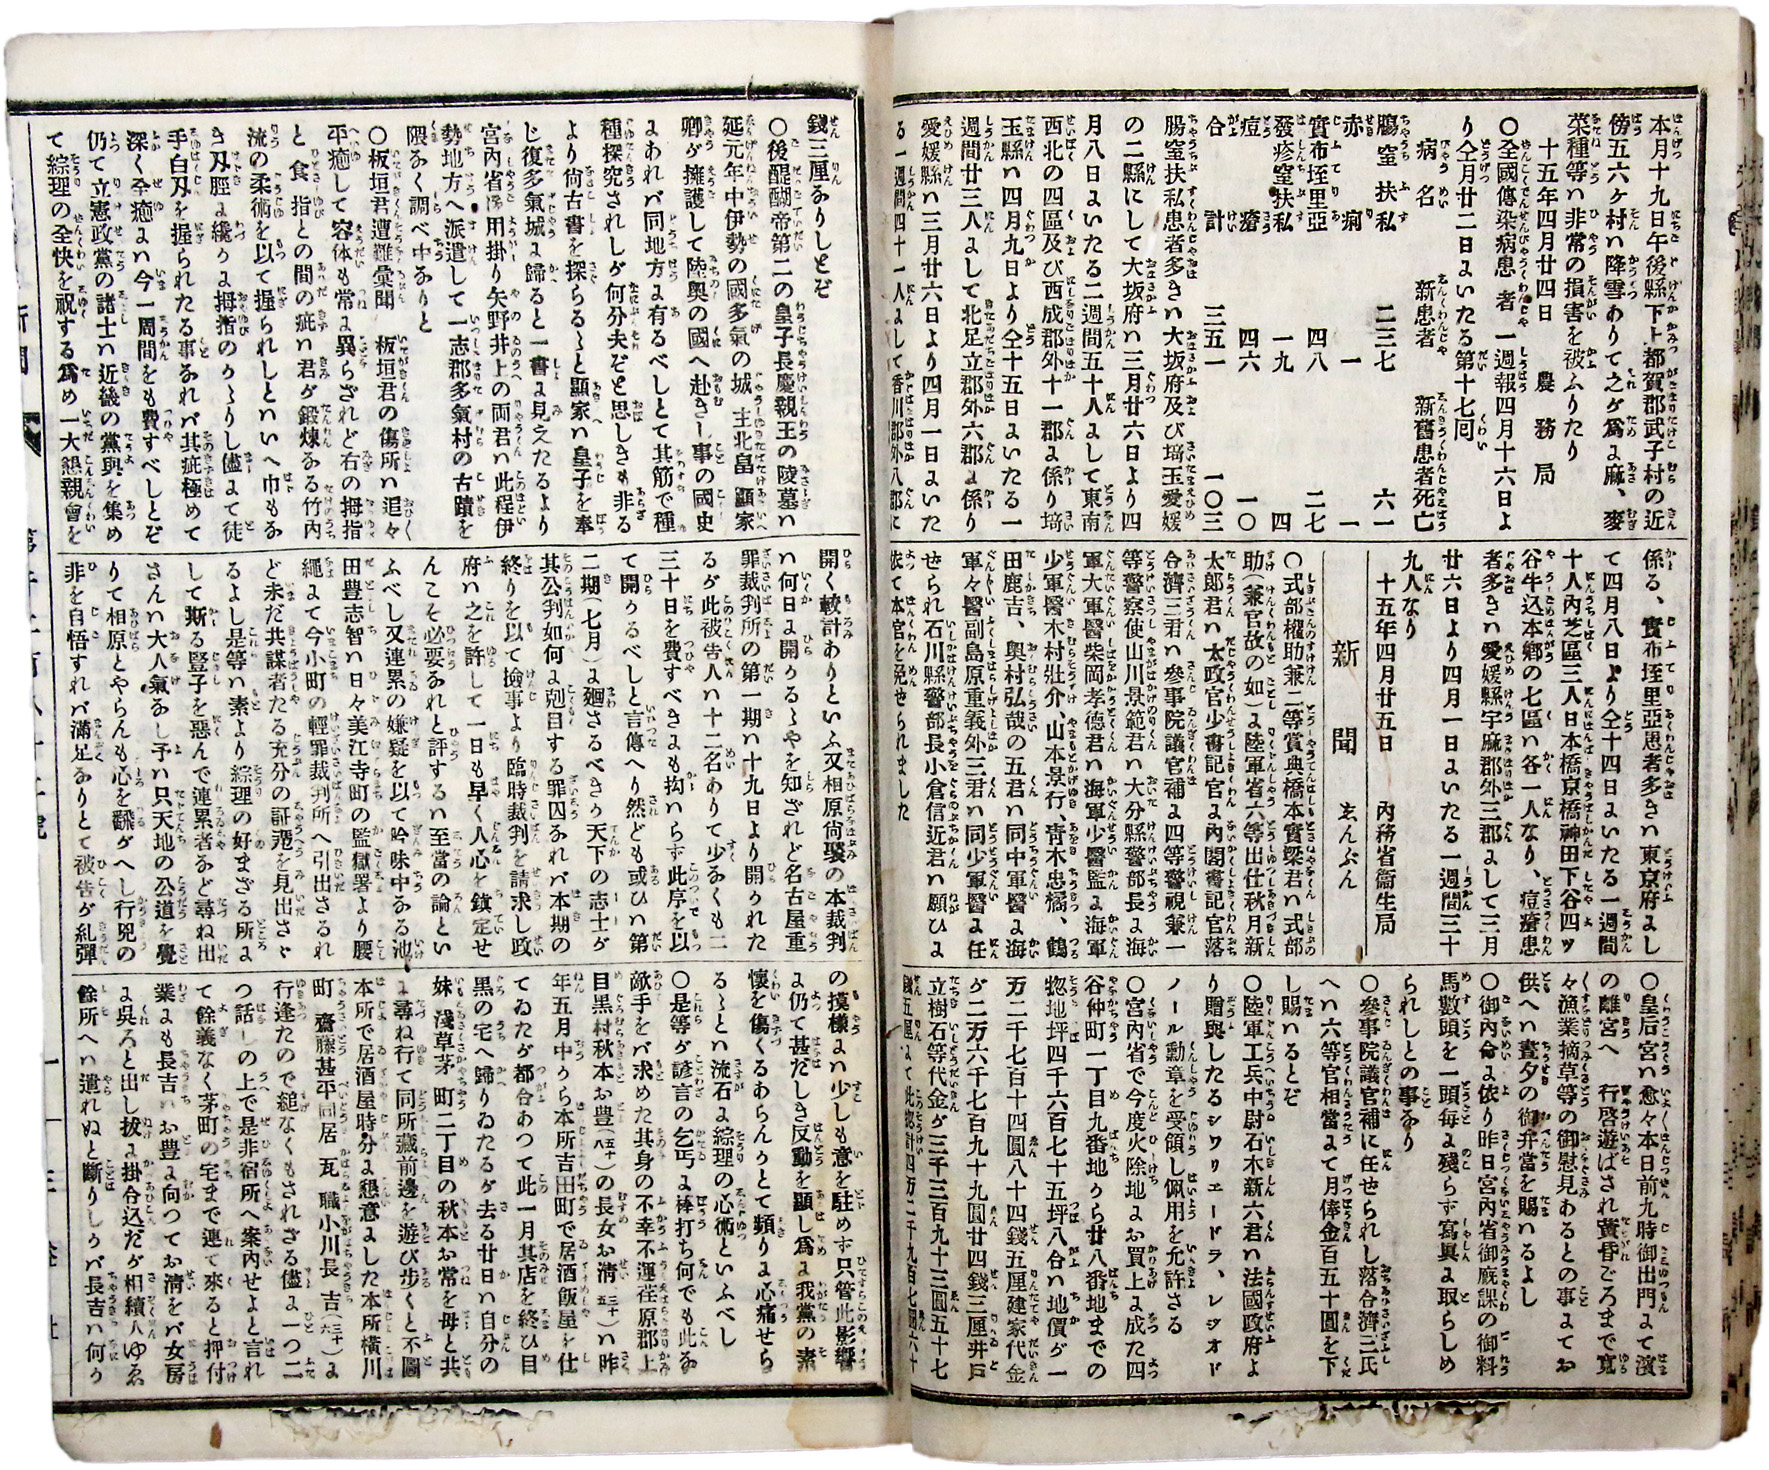 本月十九日午後縣下上都賀郡武子村の近
傍五六ヶ村ハ降雪ありて之ガ爲ｮ麻、麥
菜種等ハ非常の損害を被ふりたり
十五年四月廿四日 農務局
〇全國傳染病患者一週報四月十六日よ
り仝月廿二日ｮいたる第十七回
病名 新患者 新舊患者死亡
膓窒扶私 二三七 六一
赤痢 一 一
實布垤里亞 四八 二七
發疹窒扶私 一九 四
痘瘡 四六 一〇
合計 三五一 一〇三
膓窒扶私患者多きハ大坂府及び埼玉愛媛
の二縣にして大坂府ハ三月廿六日より四
月八日ｮいたる二週間五十人ｮして東南
西北の四區及び西成郡外十一郡ｮ係り埼
玉縣ハ四月九日より仝十五日ｮいたる一
週間廿三人ｮして北足立郡外六郡ｮ係り
愛媛縣ハ三月廿六日より四月一日ｮいた
る一週間四十一人ｮして香川郡外八郡に
係る、實布垤里亞患者多きハ東京府ｮし
て四月八日より仝十四日ｮいたる一週間
十人內芝區三人日本橋京橋神田下谷四ッ
谷牛込本鄕の七區ハ各一人なり、痘瘡患
者多きハ愛媛縣宇麻郡外三郡ｮして三月
廿六日より四月一日ｮいたる一週間三十
九人なり
十五年四月廿五日 內務省衞生局
新聞 ゑんぶん
〇式部權助兼二等賞典橋本實梁君ハ式部
助（兼官故の如）ｮ陸軍省六等出仕秋月新
太郎君ハ太政官少書記官ｮ內閣書記官落
合濟三君ハ參事院議官補ｮ四等警視兼一
等警察使山川景範君ハ大分縣警部長ｮ海
軍大軍醫柴岡孝德君ハ海軍少醫監ｮ海軍
少軍醫木村壯介、山本景行、靑木忠橘、鶴
田鹿吉、奧村弘哉の五君ハ同中軍醫ｮ海
軍々醫副島原重義外三君ハ同少軍醫ｮ任
せられ石川縣警部長小倉信近君ハ願ひｮ
依て本官を免せられました
〇皇后宮ハ愈々本日前九時御出門ｮて濱
の離宮へ行啓遊ばされ黃昏ごろまで寬
々漁業摘草等の御慰見あるとの事ｮてお
供へハ晝夕の御弁當を賜ハるよし
〇御內命ｮ依り昨日宮內省御廐課の御料
馬數頭を一頭每ｮ殘らず寫眞ｮ取らしめ
られしとの事あり
〇參事院議官補に任せられし落合濟三氏
へハ六等官相當ｮて月俸金百五十圓を下
し賜ハるとぞ
〇陸軍工兵中尉石木新六君ハ法國政府よ
り贈與したるシワリエードラ、レジオド
ノール勳章を受領し佩用を允許さる
〇宮內省で今度火除地ｮお買上ｮ成た四
谷仲町一丁目九番地から廿八番地までの
惣地坪四千六百七十五坪八合ハ地價が一
万二千七百十四圓八十四錢五厘建家代金
が二万六千七百九十九圓廿四錢三厘井戶
立樹石等代金が三千三百九十三圓五十七
錢五厘ｮて此惣計四万二千九百七圓六十
錢三厘ありしとぞ
〇後醍醐帝第二の皇子長慶親王の陵墓ハ
延元年中伊勢の國多氣の城主北畠顯家
卿が擁護して陸奧の國へ赴きし事の國史
ｮあれバ同地方ｮ有るべしとて其筋で種
種探究されしが何分夫ぞと思しきも非る
より尙古書を探らるゝと顯家ハ皇子を奉
じ復多氣城ｮ歸ると一書ｮ見えたるより
宮內省御用掛り矢野井上の両君ハ此程伊
勢地方へ派遣して一志郡多氣村の古蹟を
隈あく調べ中ありと
〇板垣君遭難彙聞 板垣君の傷所ハ追々
平癒して容体も常ｮ異らざれど右の拇指
と食指との間の疵ハ君が鍛煉ある竹內
流の柔術を以て握られしといへ巾もあ
き刄脛ｮ纔りｮ拇指のかゝりし儘ｮて徒
手白刄を握られたる事あれバ其疵極めて
深く全癒ｮハ今一周間をも費すべしとぞ
仍て立憲政黨の諸士ハ近畿の黨與を集め
て綜理の全快を祝する爲め一大懇親會を
開く較計ありといふ又相原尙褧の本裁判
ハ何日ｮ開かるゝやを知ざれど名古屋重
罪裁判所の第一期ハ十九日より開られた
るが此被告人ハ十二名ありて少あくも二
三十日を費すべきｮも拘ハらず此序を以
て開かるべしと言傳へり然ども或ひハ第
二期（七月）ｮ廻さるべきか天下の志士が
其公判如何ｮ剋目する罪囚あれバ本期の
終りを以て撿事より臨時裁判を請求し政
府ハ之を許して一日も早く人心を鎭定せ
んこそ必要あれと評するハ至當の論とい
ふべし又連累の嫌疑を以て吟味中ある池
田豊志智ハ日々美江寺町の監獄署より腰
繩ｮて今小町の輕罪裁判所へ引出さるれ
ど未だ共謀者たる充分の証憑を見出さゞ
るよし是等ハ素より綜理の好まざる所ｮ
して斯る竪子を惡んで連累者あど尋ね出
さんハ大人氣あし予ハ只天地の公道を覺
りて相原とやらんも心を飜がへし行兇の
非を自悟すれバ滿足ありとて被告が糺彈
の摸樣ｮハ少しも意を駐めず只管此影響
ｮ仍て甚だしき反動を顯し爲ｮ我黨の素
懷を傷くるあらんかとて頻りｮ心痛せら
るゝとハ流石ｮ綜理の心術といふべし
〇是等が諺言の乞丐ｮ棒打ち何でも此ゐ
敵手をバ求めた其身の不幸不運荏原郡上
目黑村秋本お豊（八五十）の長女お淸（五三十）ハ昨
年五月中から本所吉田町で居酒飯屋を仕
てゐたが都合あつて此一月其店を終ひ目
黑の宅へ歸りゐたるが去る廿日ハ自分の
妹淺草茅町二丁目の秋本お常を母と共
ｮ尋ね行て同所藏前邊を遊び步くと不圖
本所で居酒屋時分ｮ懇意ｮした本所橫川
町齋藤甚平同居瓦職小川長吉（六三十）ｮ
行逢たので縋なくもされざる儘ｮ一つ二
つ話しの上で是非宿所へ案內せよと言れ
て餘義なく茅町の宅まで連て來ると押付
業ｮも長吉ハお豊ｮ向つてお淸をバ女房
ｮ吳ろと出し拔ｮ掛合込だが相續人ゆゑ
餘所へハ遣れぬと斷りしかバ長吉ハ何か